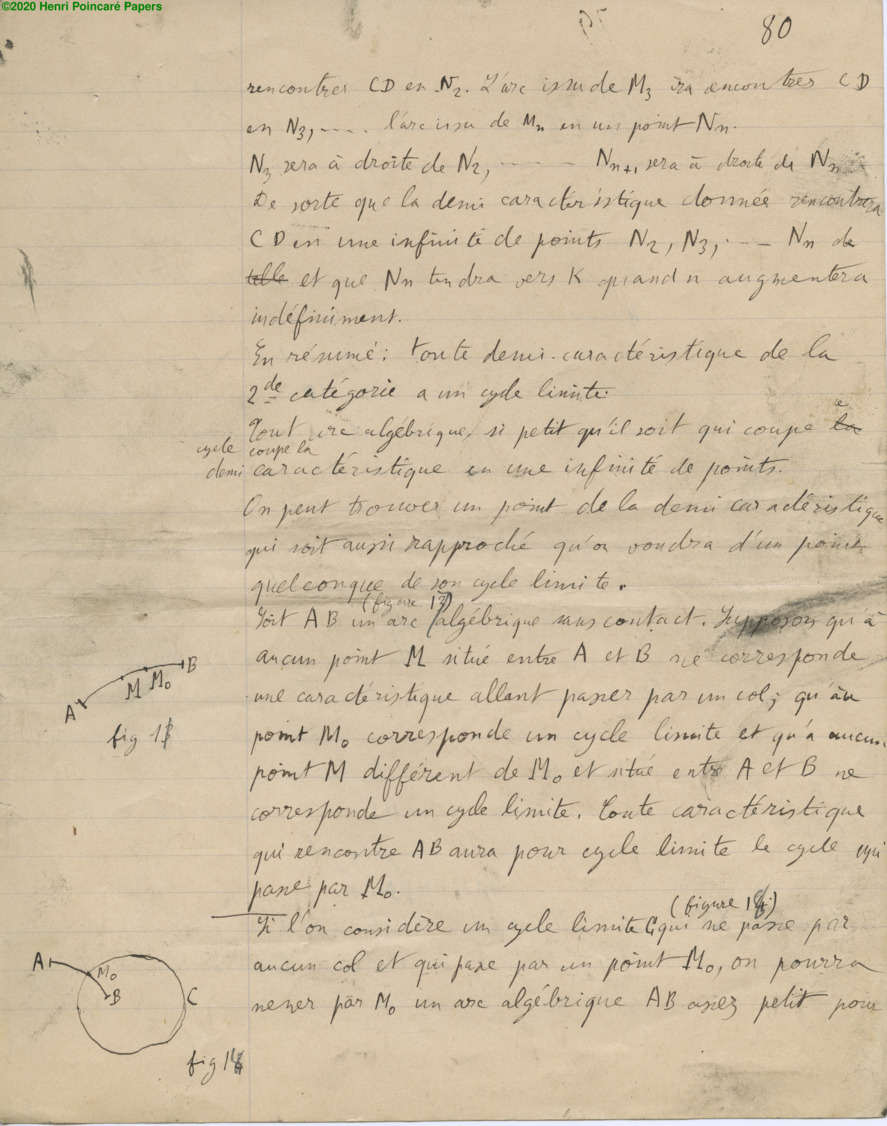 ©2020 Henri Poincaré Papers
80
rencontrer CD en N2. L'arc issu de M3 ira rencontrer CD
en N3, .... l'arc issu de Mn en un point Nn.
N3 sera à droite de N2, ..... Nn+1 sera à droite de Nn
De sorte que la demi caractéristique donnée rencontrera
CD en une infinité de points N2, N3, ... Nn de
telle et que Nn tendra vers K quand n augmentera
indéfiniment.
En résumé: toute demi-caractéristique de la
2de catégorie a un cycle limite.
Tout arc algébrique, si petit qu'il soit qui coupe le
cycle coupe la
demi caractéristique en une infinité de points.
On peut trouver un point de la demi caractéristique
qui soit aussi rapproché qu'on voudra d'un point
quelconque de son cycle limite.
(figure 17)
Soit AB un arc algébrique sans contact. Supposons qu'à
aucun point M situé entre A et B ne corresponde
une caractéristique allant passer par un col; qu'au
point M0 corresponde un cycle limite et qu'à aucun
point M différent de M0 et situé entre A et B ne
corresponde un cycle limite. Toute caractéristique
qui rencontre AB aura pour cycle limite le cycle qui
passe par M0.
(figure 18)
Si l'on considère un cycle limite C qui ne passe par
aucun col et qui passe par un point M0, on pourra
mener par M0 un arc algébrique AB assez petit pour
A M M0 B
fig 1
A M0 B C
fig 18